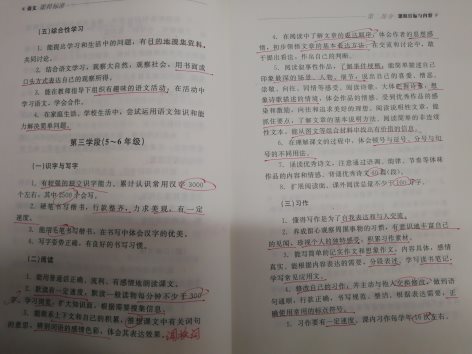 语文 课程标准
(五)综合性学习
1. 能提出学习和生活中的问题,有目的地搜集资料,
共同讨论。
2. 结合语文学习,观察大自然,观察社会,用书面或
口头方式表达自己的观察所得。
3. 能在教师指导下组织有趣味的语文活动,在活动中
学习语文,学会合作。
4. 在家庭生活、学校生活中,尝试运用语文知识和能
力解决简单问题。
第三学段(5~6年级)
(一)识字与写字
1. 有较强的独立识字能力。累计认识常用汉字3000
个左右,其中2500个会写。
2. 硬笔书写楷书,行款整齐,力求美观,有一定
速度。
3. 能用毛笔书写楷书,在书写中体会汉字的优美。
4. 写字姿势正确,有良好的书写习惯。
(二)阅读
1. 能用普通话正确、流利、有感情地朗读课文。
2. 默读有一定速度,默读一般读物每分钟不少于300
字。学习浏览,扩大知识面,根据需要搜集信息。
3. 能联系上下文和自己的积累,推想课文中有关词句
的意思,辨别词语的感情色彩,体会其表达效果。
第二部分 课程目标与内容
4. 在阅读中了解文章的表达顺序,体会作者的思想感
情,初步领悟文章的基本表达方法。在交流和讨论中,敢
于提出看法,作出自己的判断。
5. 阅读叙事性作品,了解事件梗概,能简单描述自己
印象最深的场景、人物、细节,说出自己的喜爱、憎恶、
崇敬、向往、同情等感受。阅读诗歌,大体把握诗意,想
象诗歌描述的情境,体会作品的情感。受到优秀作品的感染
和激励,向往和追求美好的理想。阅读说明性文章,能
抓住要点,了解文章的基本说明方法。阅读简单的非连续
性文本,能从图文等组合材料中找出有价值的信息。
6. 在理解课文的过程中,体会顿号与逗号、分号与句
号的不同用法。
7. 诵读优秀诗文,注意通过语调、韵律、节奏等体味
作品的内容和情感。背诵优秀诗文60篇(段)。
8. 扩展阅读面。课外阅读总量不少于100万字。
(三)习作
1. 懂得写作是为了自我表达和与人交流。
2. 养成留心观察周围事物的习惯,有意识地丰富自己
的见闻,珍视个人的独特感受,积累习作素材。
3. 能写简单的记实作文和想象作文,内容具体,感情
真实。能根据内容表达的需要,分段表述。学写读书笔记,
学写常见应用文。
4. 修改自己的习作,并主动与他人交换修改,做到语
句通顺,行款正确,书写规范、整洁。根据表达需要,正
确使用常用的标点符号。
5. 习作要有一定速度。课内习作每学年16次左右。